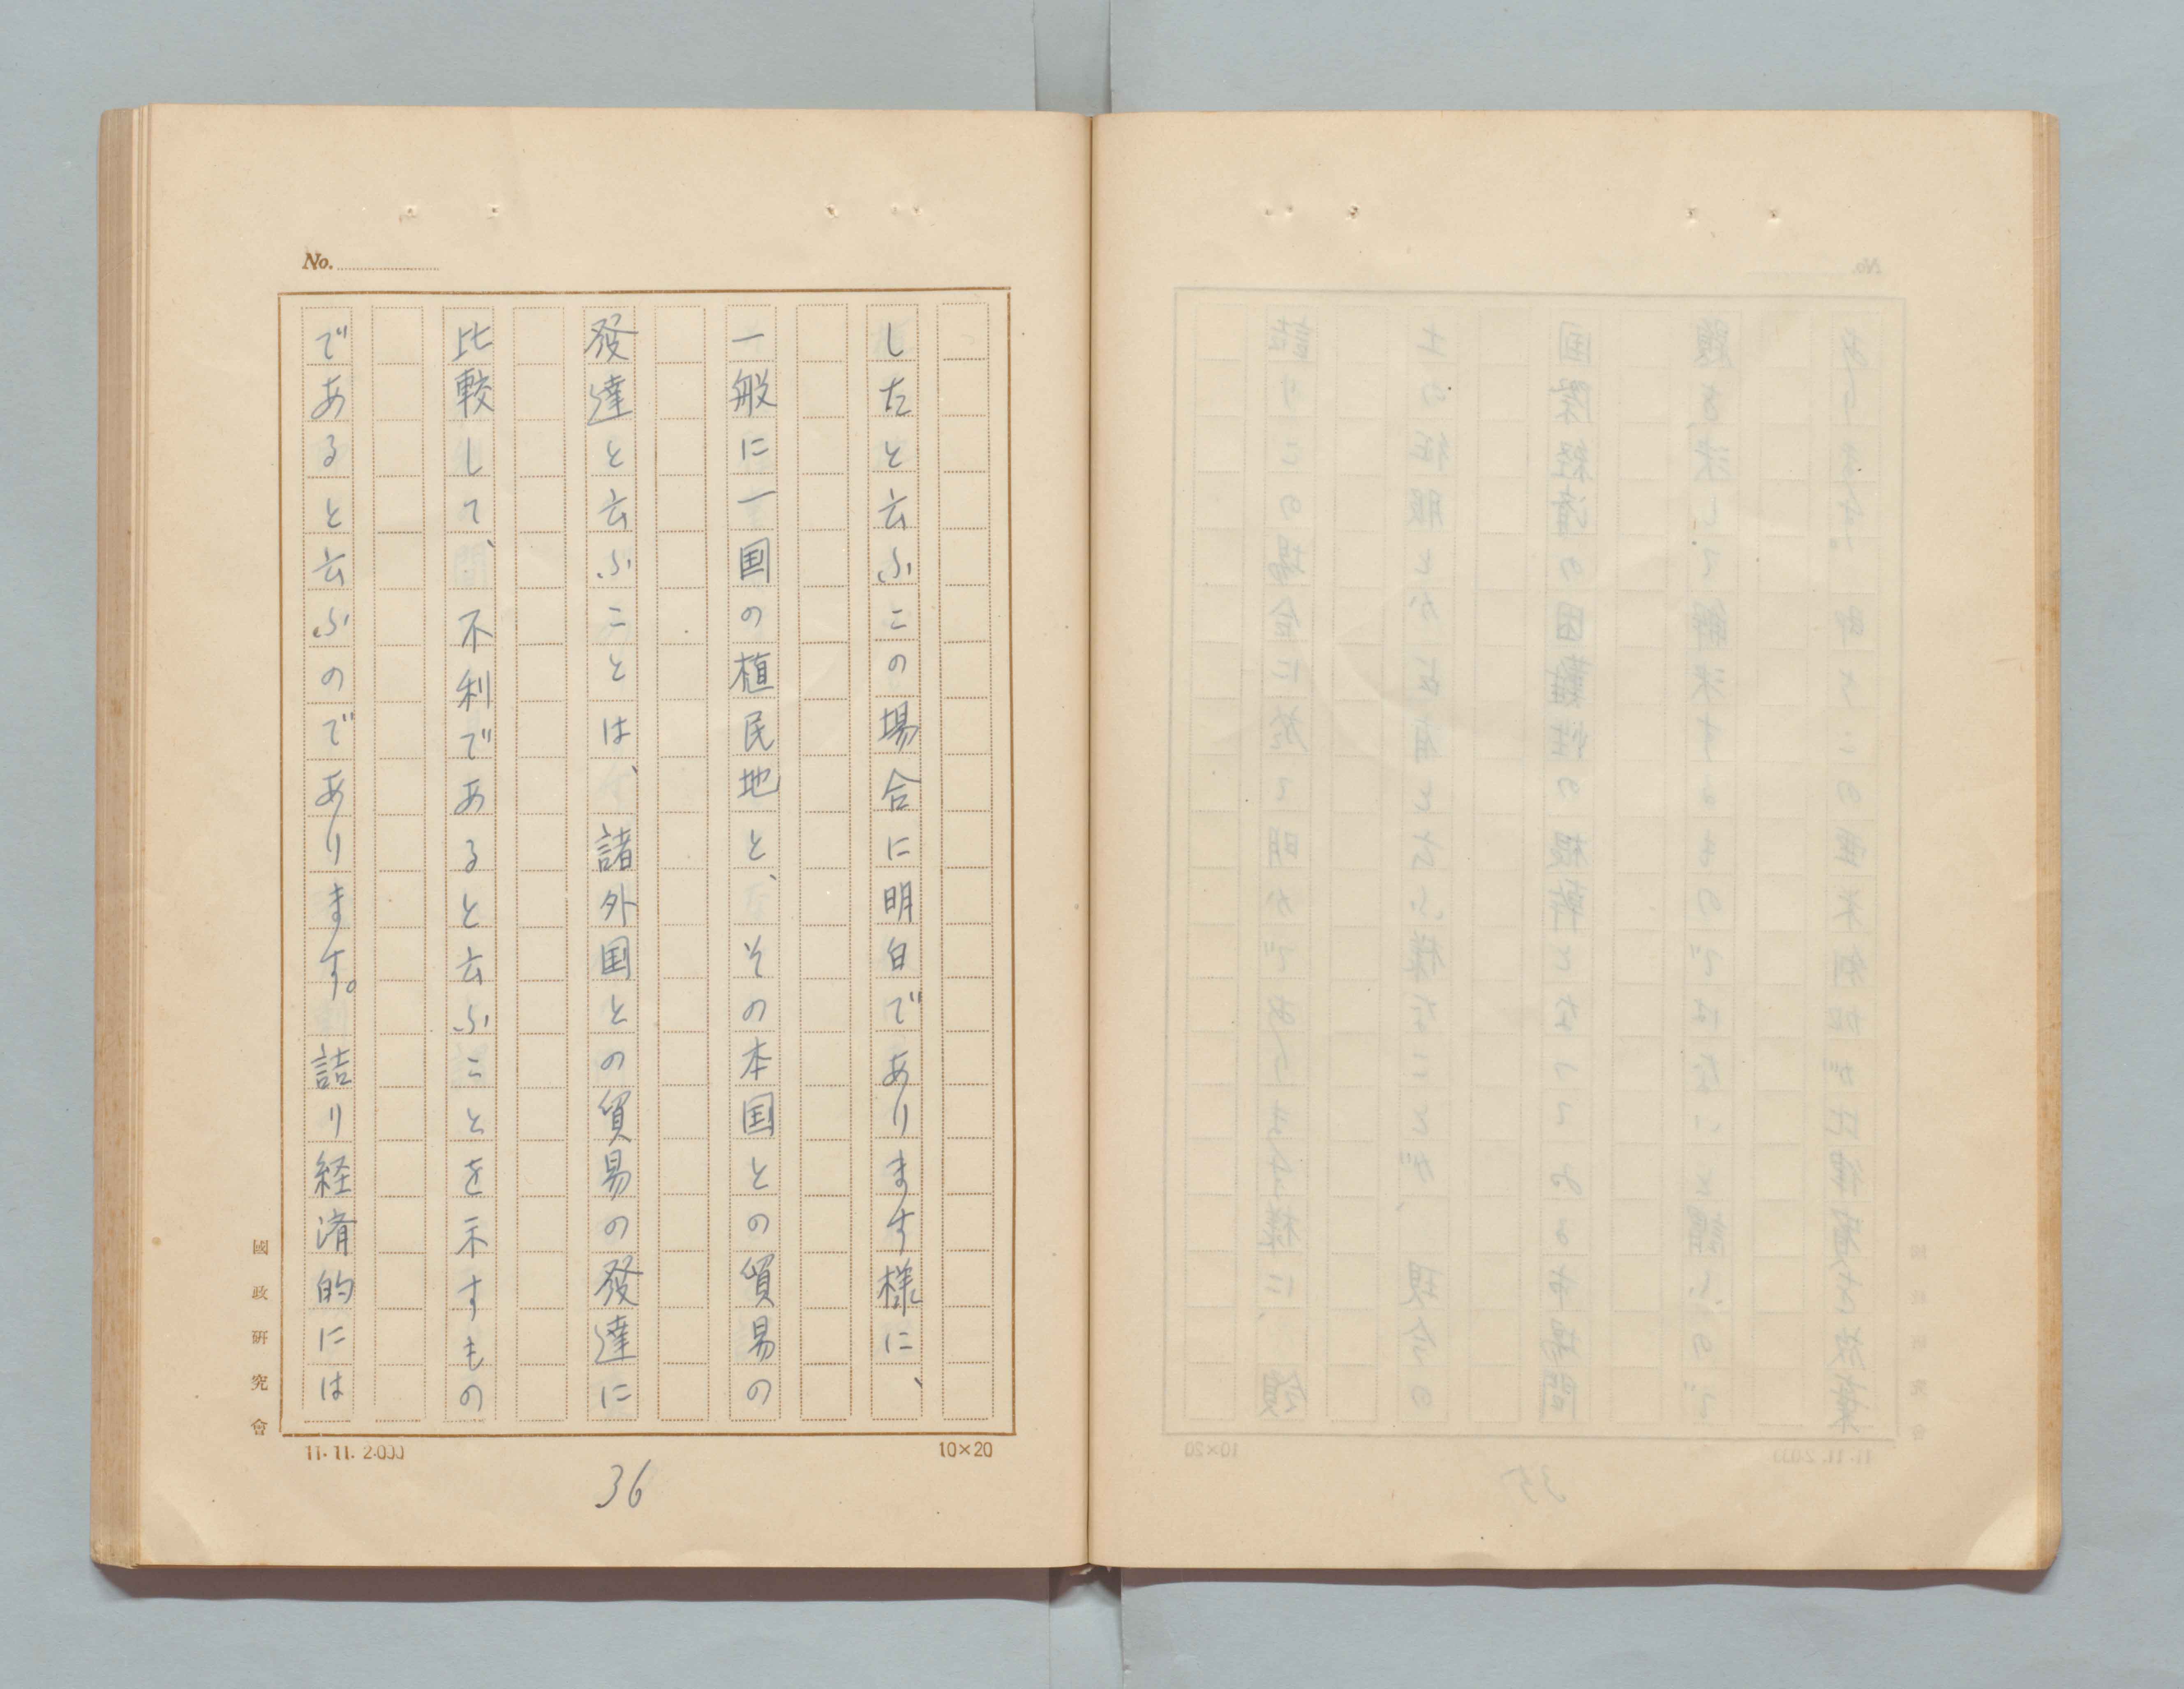 No.
したと云ふこの場合に明白であります様に、
一般に一国の植民地と、その本国との貿易の
發達と云ふことは、諸外国との貿易の發達に
比較して、不利であると云ふことを示すもの
であると云ふのであります。詰り経済的には
國政研究會
11.11.2.000
10×20
36